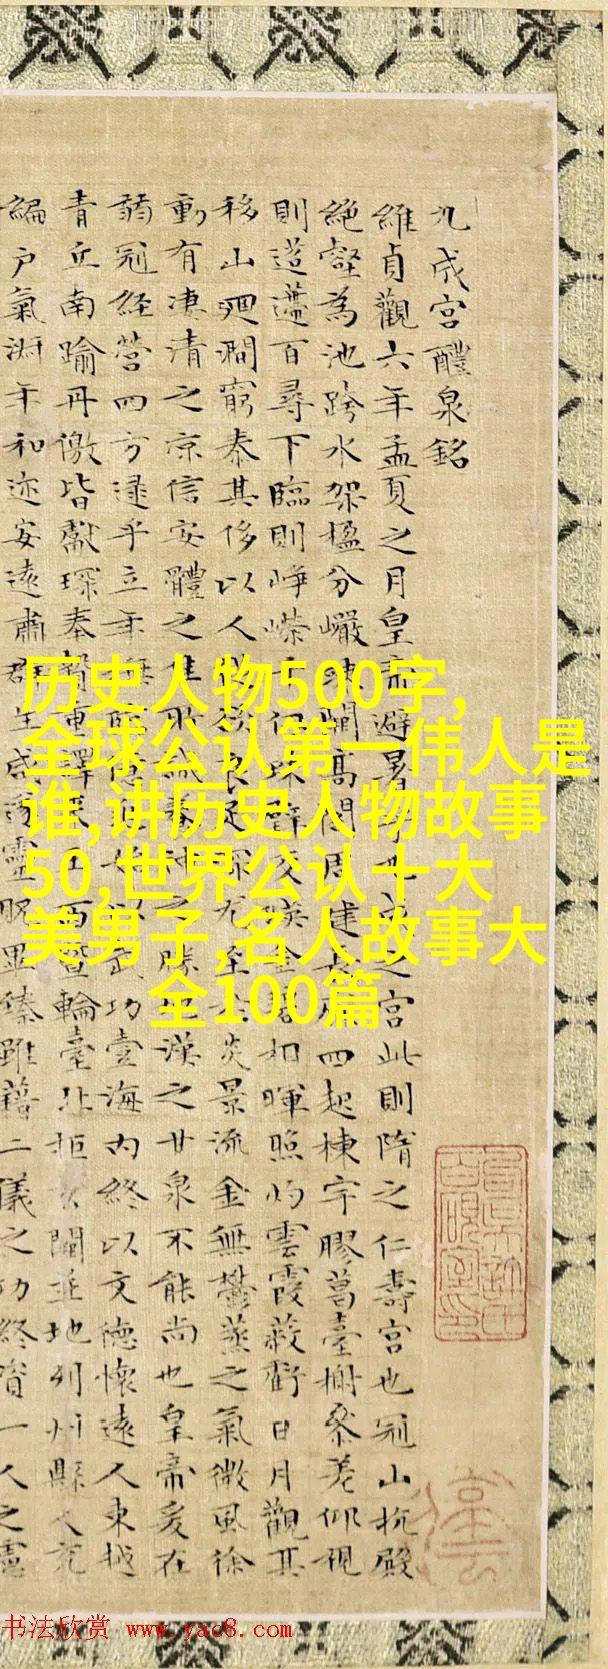 九成宮醴泉銘
維貞觀六年孟夏之月皇帝避暑之宮此則隋之仁壽宮也冠山抗殿
絕壑為池跨水架楹分巖竦闕高閣周建長廊四起棟宇膠葛臺榭參差仰視
則迢遰百尋下臨則崢嶸千仞珠璧交映金碧相暉照灼雲霞蔽虧日月觀其
移山迴澗窮泰其侈以人從欲良足深尤至於炎景流金無鬱蒸之氣微風徐
動有凄清之涼信安體之佳所誠養神之勝地漢之甘泉不能尚也皇帝爰在
弱冠經營四方逮乎立年撫臨億以武功壹海內終以文德懷遠人東越
青丘南踰丹徼皆獻琛奉贄重譯來王西暨輪臺北拒玄闕並地列州縣人充
編戶氣淑年和迩安遠肅群生咸遂靈貺畢臻雖藉二儀之功終資一人之慮
历史人物500字,
全球公认第一伟人是
谁,讲历史人物故事
50,世界公认十大
美男子,名人故事大
全100篇
书法欣赏 www.yac8.com